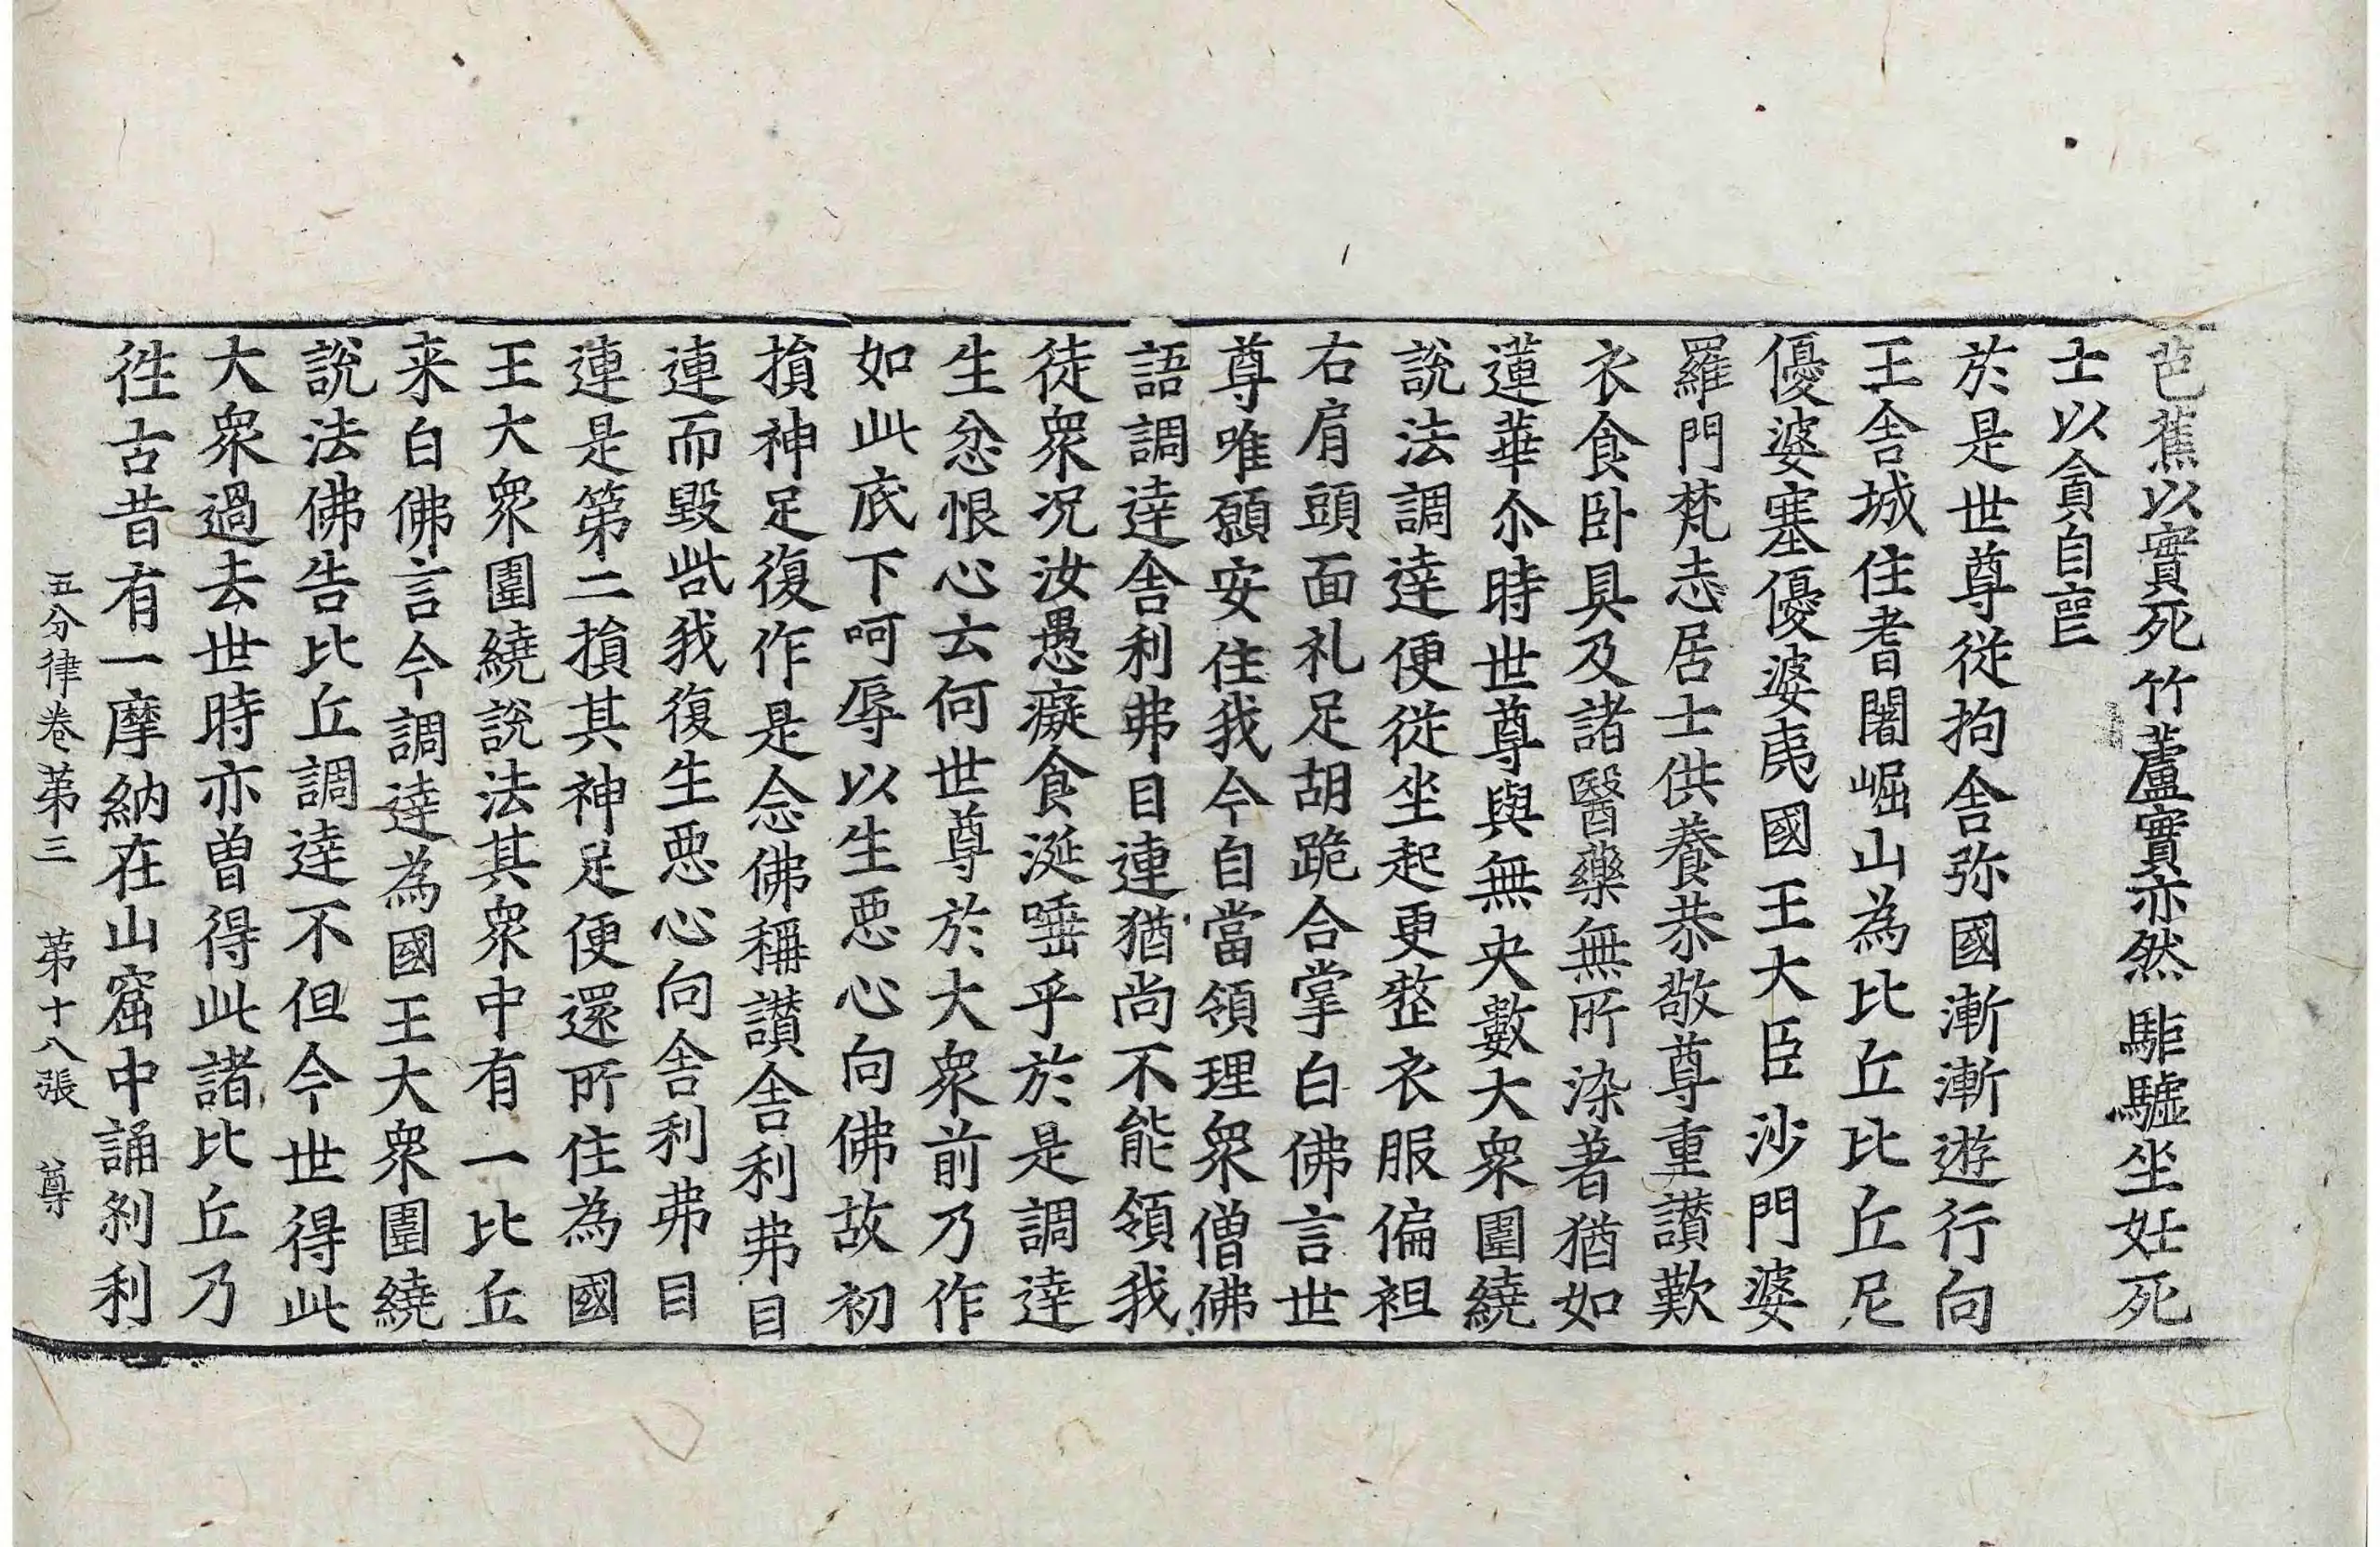 芭蕉以實死竹蘆實亦然駏驉坐妊死
士以貪自喪
於是世尊従拘舍弥國漸漸遊行向
王舍城住耆闍崛山為比丘比丘尼
優婆塞優婆夷國王大臣沙門婆
羅門梵志居士供養恭敬尊重讃歎
衣食卧具及諸醫藥無所染著猶如
蓮華尒時世尊與無央數大衆圍繞
說法調達便従坐起更整衣服偏袒
右肩頭面礼足胡跪合掌白佛言世
尊唯願安住我今自當領理衆僧佛
語調達舍利弗目連猶尚不能領我
徒衆况汝愚癡食涎唾乎於是調達
生忿恨心云何世尊於大衆前乃作
如此底下呵辱以生惡心向佛故初
損神足復作是念佛稱讃舍利弗目
連而毀呰我復生惡心向舍利弗目
連是第二損其神足便還所住為國
王大衆圍繞說法其衆中有一比丘
来白佛言今調達為國王大衆圍繞
說法佛告比丘調達不但今世得此
大衆過去世時亦曾得此諸比丘乃
徃古昔有一摩納在山窟中誦刹利
五分律卷苐三 苐十八張 尊